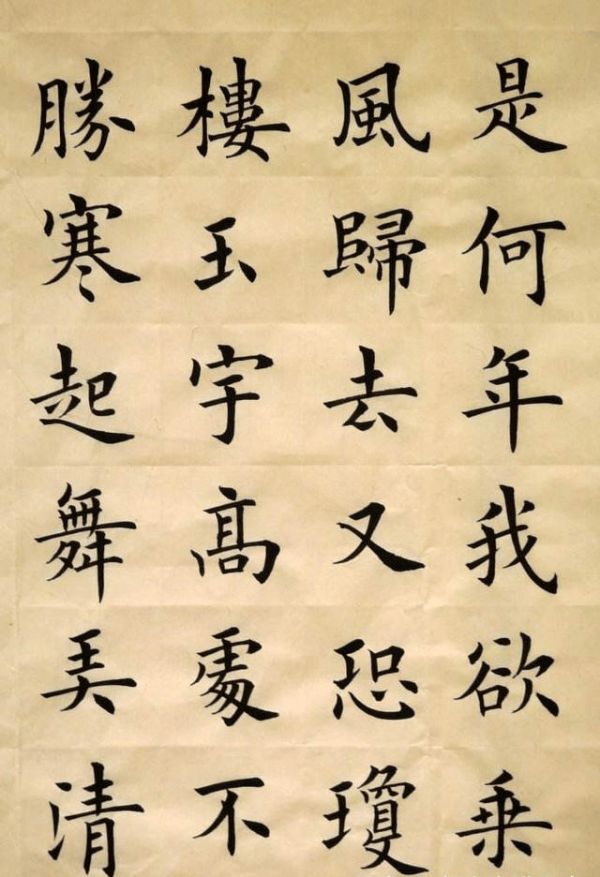 是何年我欲乗
風歸去又恐瓊
樓玉宇髙處不
勝寒起舞弄清